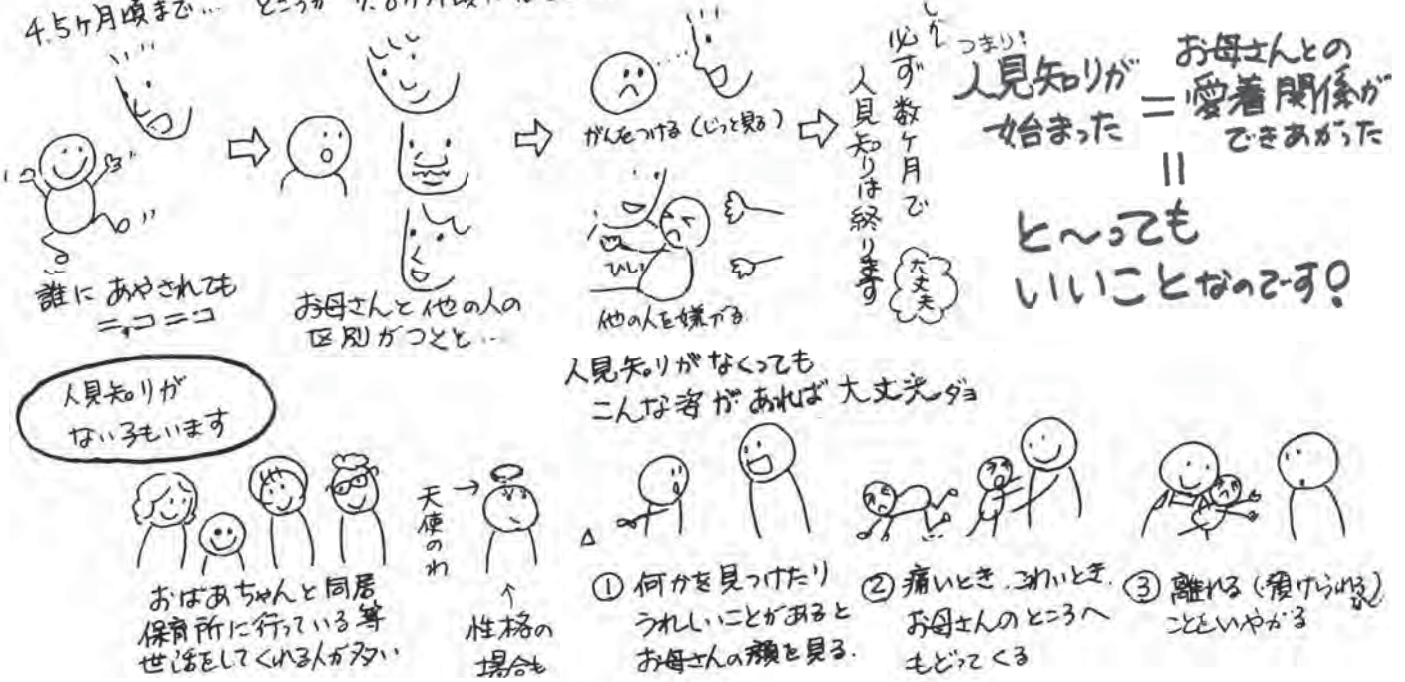 4.5ヶ月頃まで… ところが
誰に あやされても
ニッコニコ
お母さんと他の人の
区別がつくと…
がんをつける(じっと見る)
ひしっ
他の人を嫌がる
しかし
必ず数ヶ月で
人見知りは終ります
大丈夫
つまり!
人見知りが
始まった
=
お母さんとの
愛着関係が
できあがった
=
と〜っても
いいことなのです!
人見知りが
ない子もいます
おばあちゃんと同居
保育所に行っている等
世話をしてくれる人が多い
天使のわ
性格の
場合も
人見知りがなくっても
こんな姿があれば大丈夫ダヨ
① 何かを見つけたり
うれしいことがあると
お母さんの顔を見る.
② 痛いとき、こわいとき、
お母さんのところへ
もどってくる
③ 離れる(預けられる)
ことをいやがる